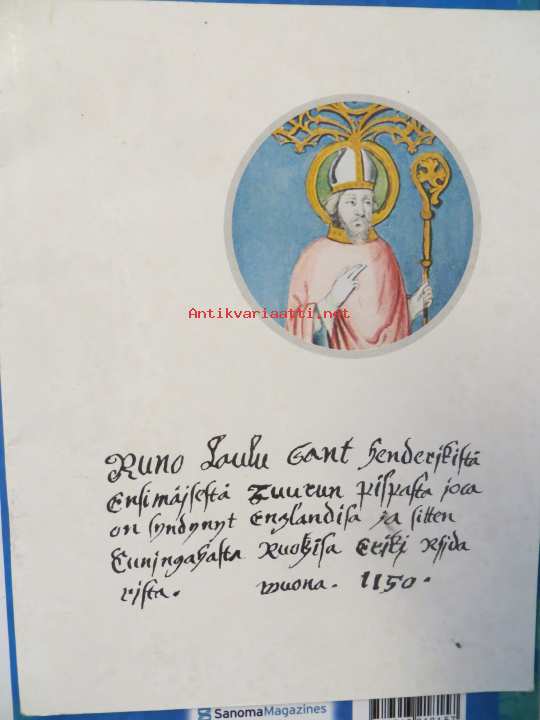 Antikvariaatti.net
Runo Laulu Sant Henderjkistä
Ensimäjsestä Tuurun pispasta joca
on syndynyt Englandisa ja sitten
Cuningahasta Ruotzisa Erikj
rista. wuona. 1150.
SanomaMagazines